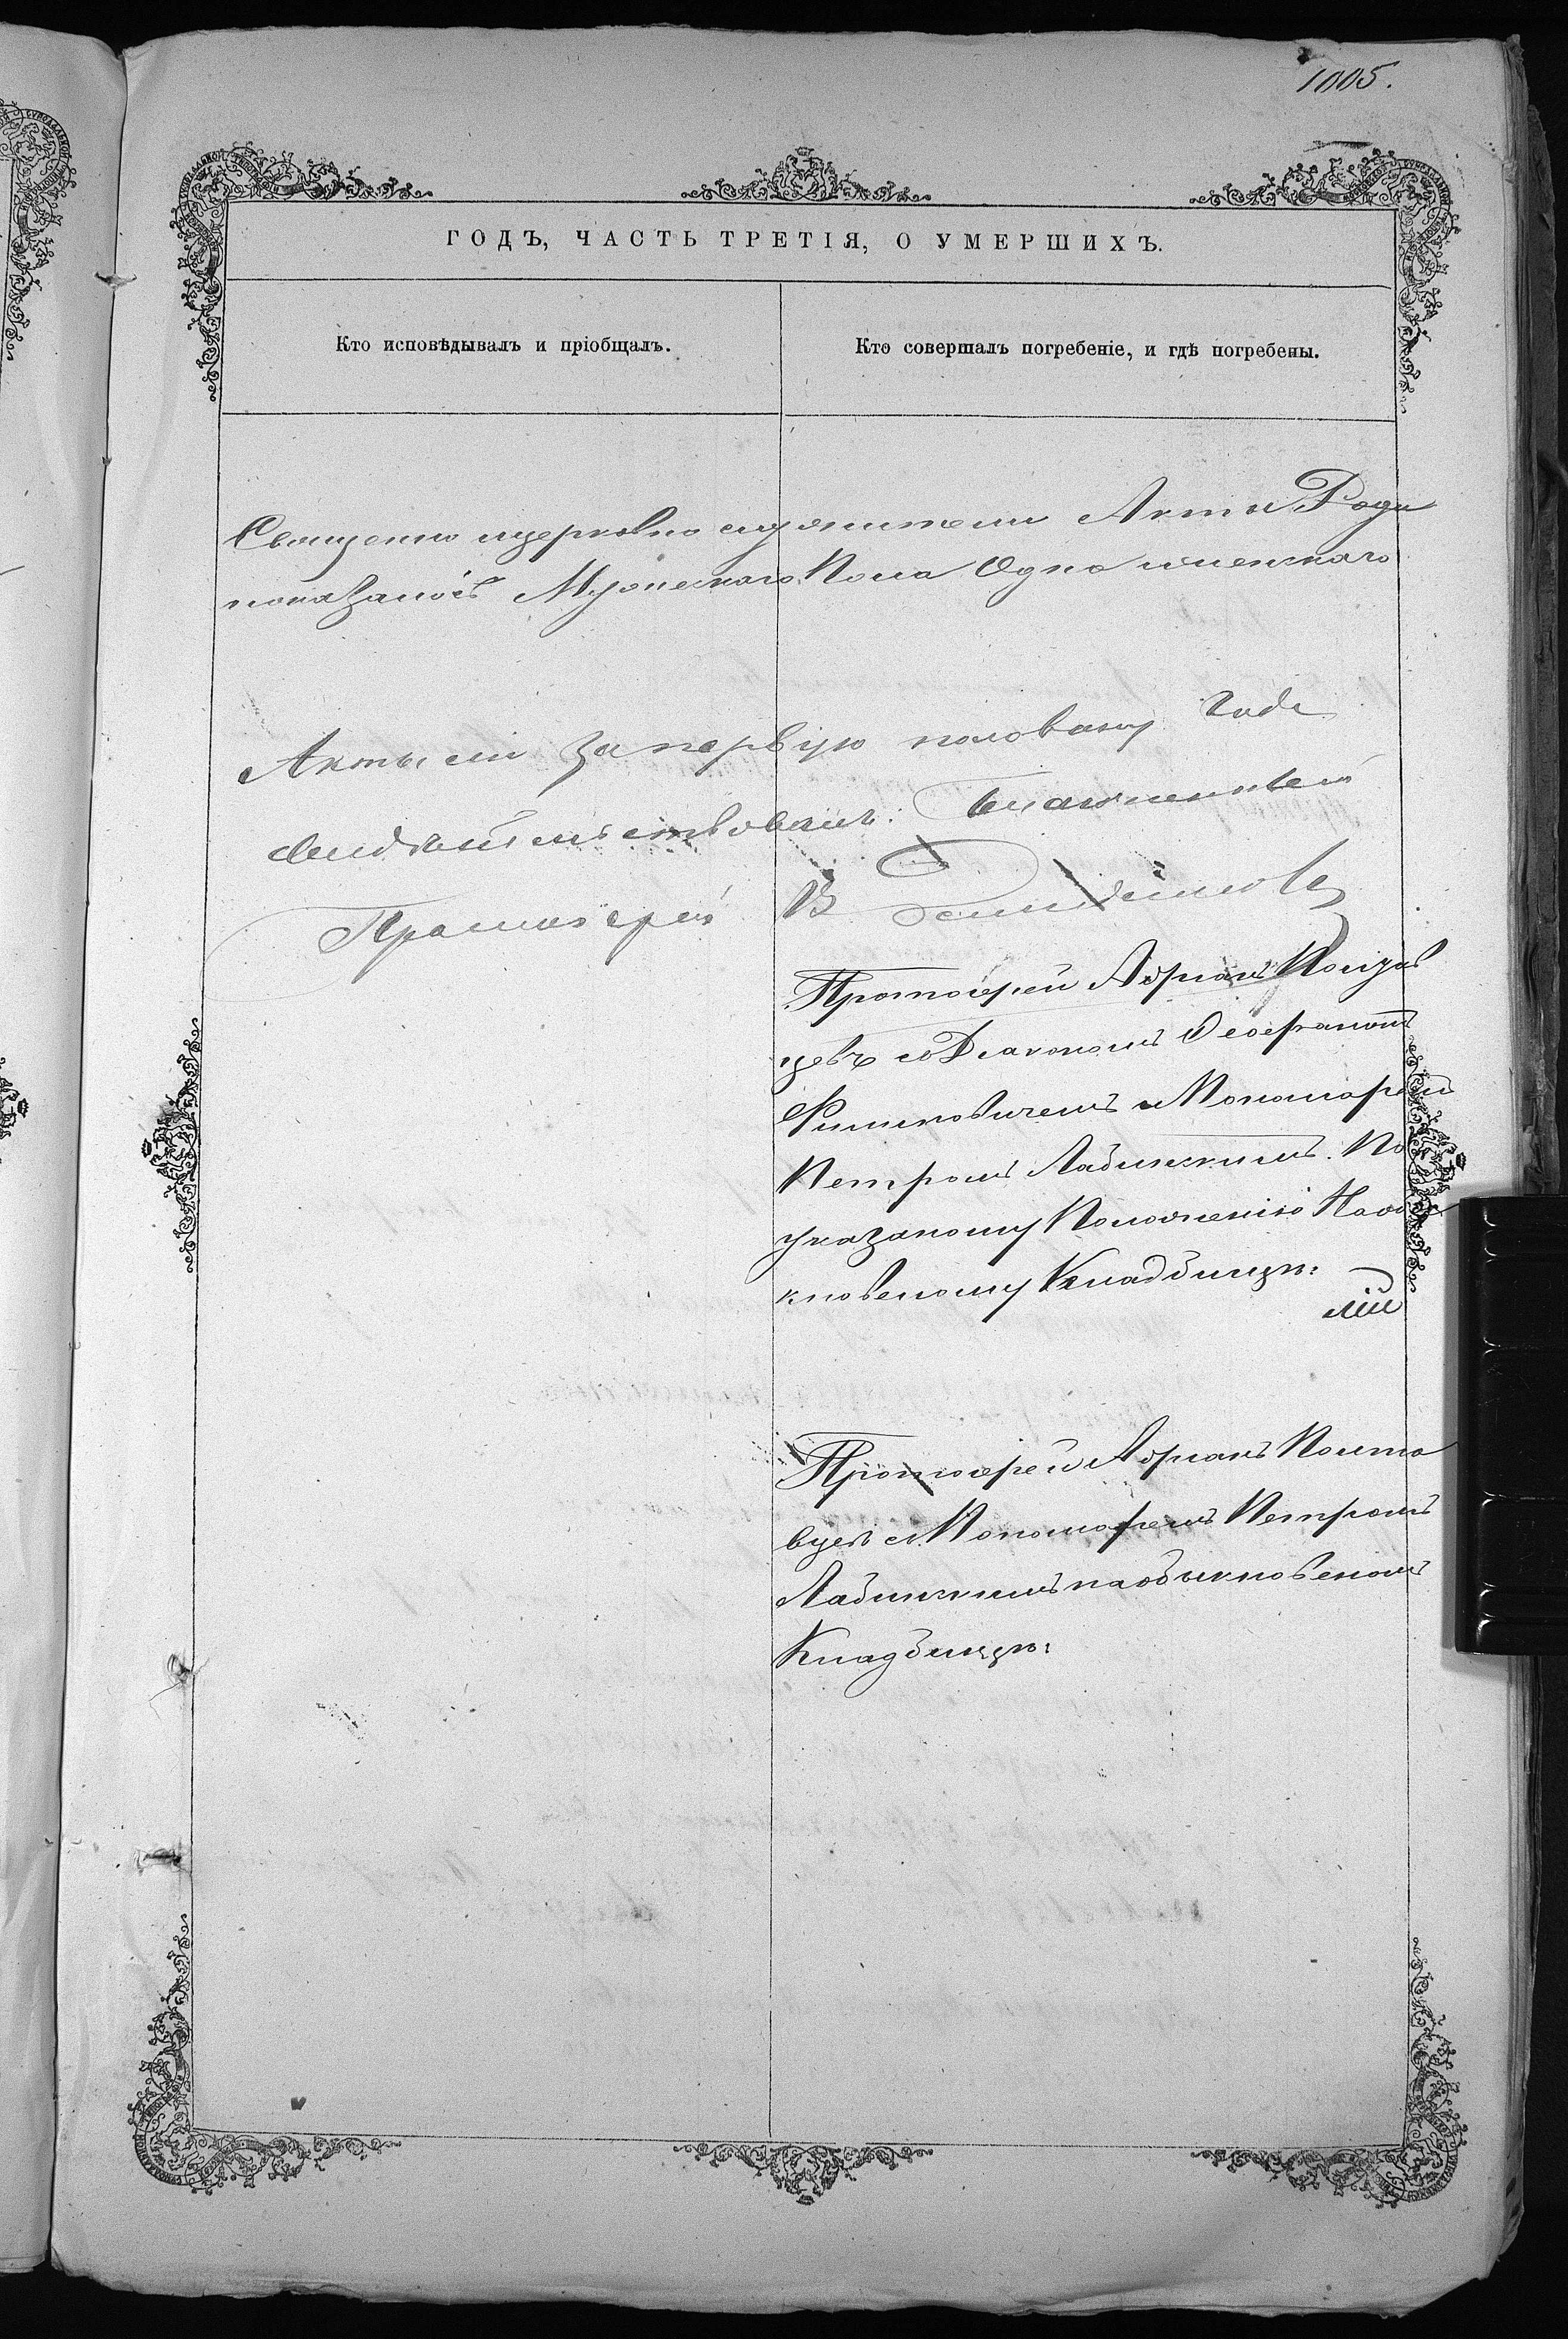 1005.
ГОДЪ, ЧАСТЬ ТРЕТІЯ, О УМЕРШИХЪ.
Кто исповѣдывалъ и пріобщалъ.
Кто совершалъ погребеніе, и гдѣ погребены.
Священно и церковно служители Акты Роди
показанос Мужескаго Пола Одно женскаго
Акты сіи за первую половину года
свидѣтельствовалъ: Благочинный
Протоіерей В
Протоіерей Адріанъ Полтав
цевъ со Діакономъ Феофаном
Филиповичемъ и Пономарем
Петромъ Лабинскимъ. По
указаному Положенію На об
кновеному Кладбищѣ:
Протоіерей Адріанъ Полта
вцев с Пономаремъ Петромъ
Лабинскимъ на обыкновеномъ
Кладбищѣ: